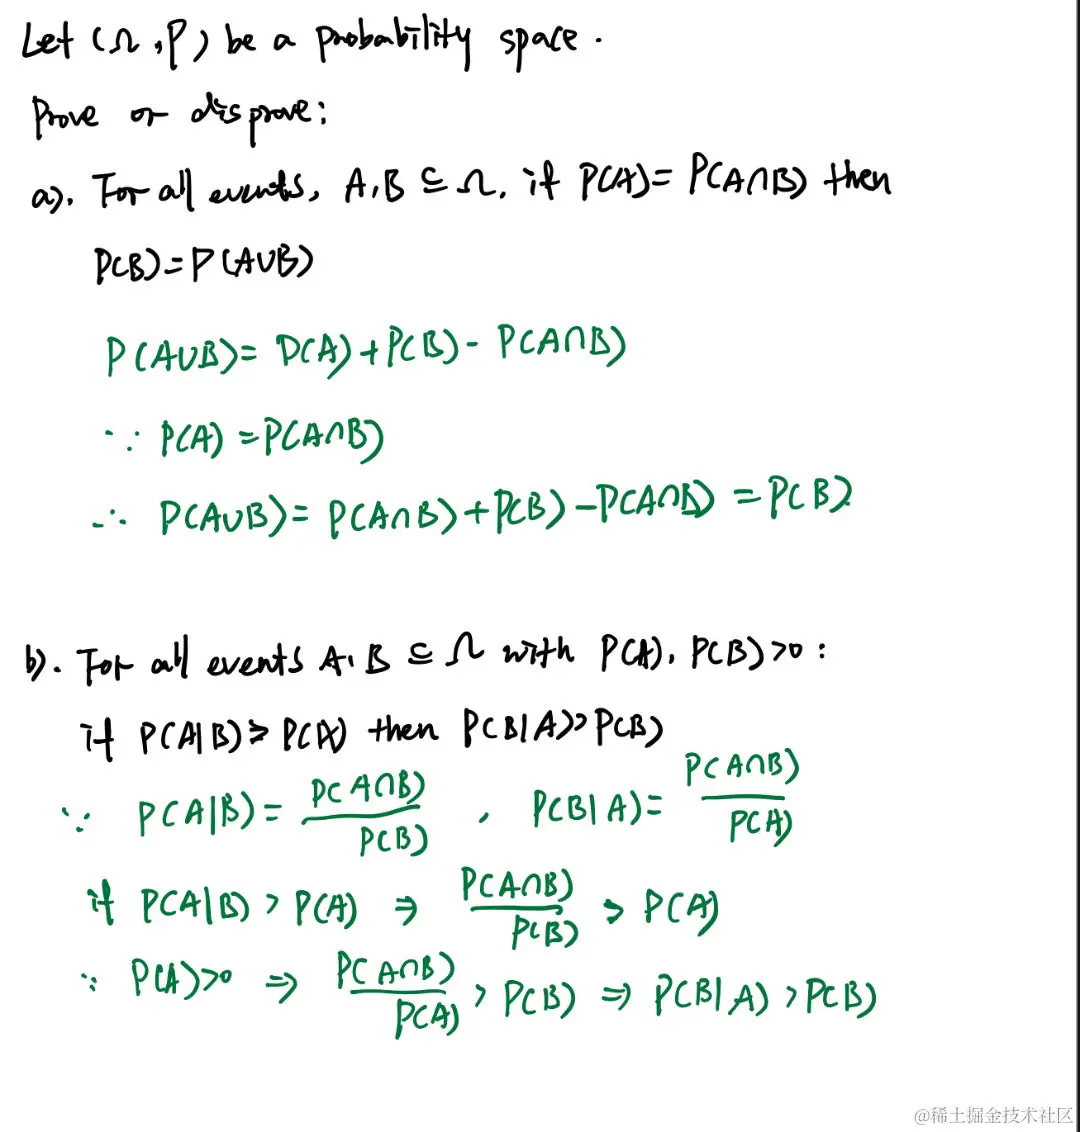 Let (Ω,P) be a probability space.
Prove or disprove:
a). For all events, A,B ⊆ Ω, if P(A)= P(A∩B) then
P(B)=P(A∪B)
P(A∪B)= P(A)+P(B)- P(A∩B)
∵ P(A) =P(A∩B)
∴ P(A∪B)= P(A∩B)+P(B)-P(A∩B) = P(B)
b). For all events A,B ⊆ Ω with P(A), P(B)>0:
if P(A|B)> P(A) then P(B|A)>P(B)
∵ P(A|B)= P(A∩B)/P(B) , P(B|A)= P(A∩B)/P(A)
if P(A|B) > P(A) ⇒ P(A∩B)/P(B) > P(A)
∵ P(A)>0 ⇒ P(A∩B)/P(A) > P(B) ⇒ P(B|A) >P(B)
@稀土掘金技术社区